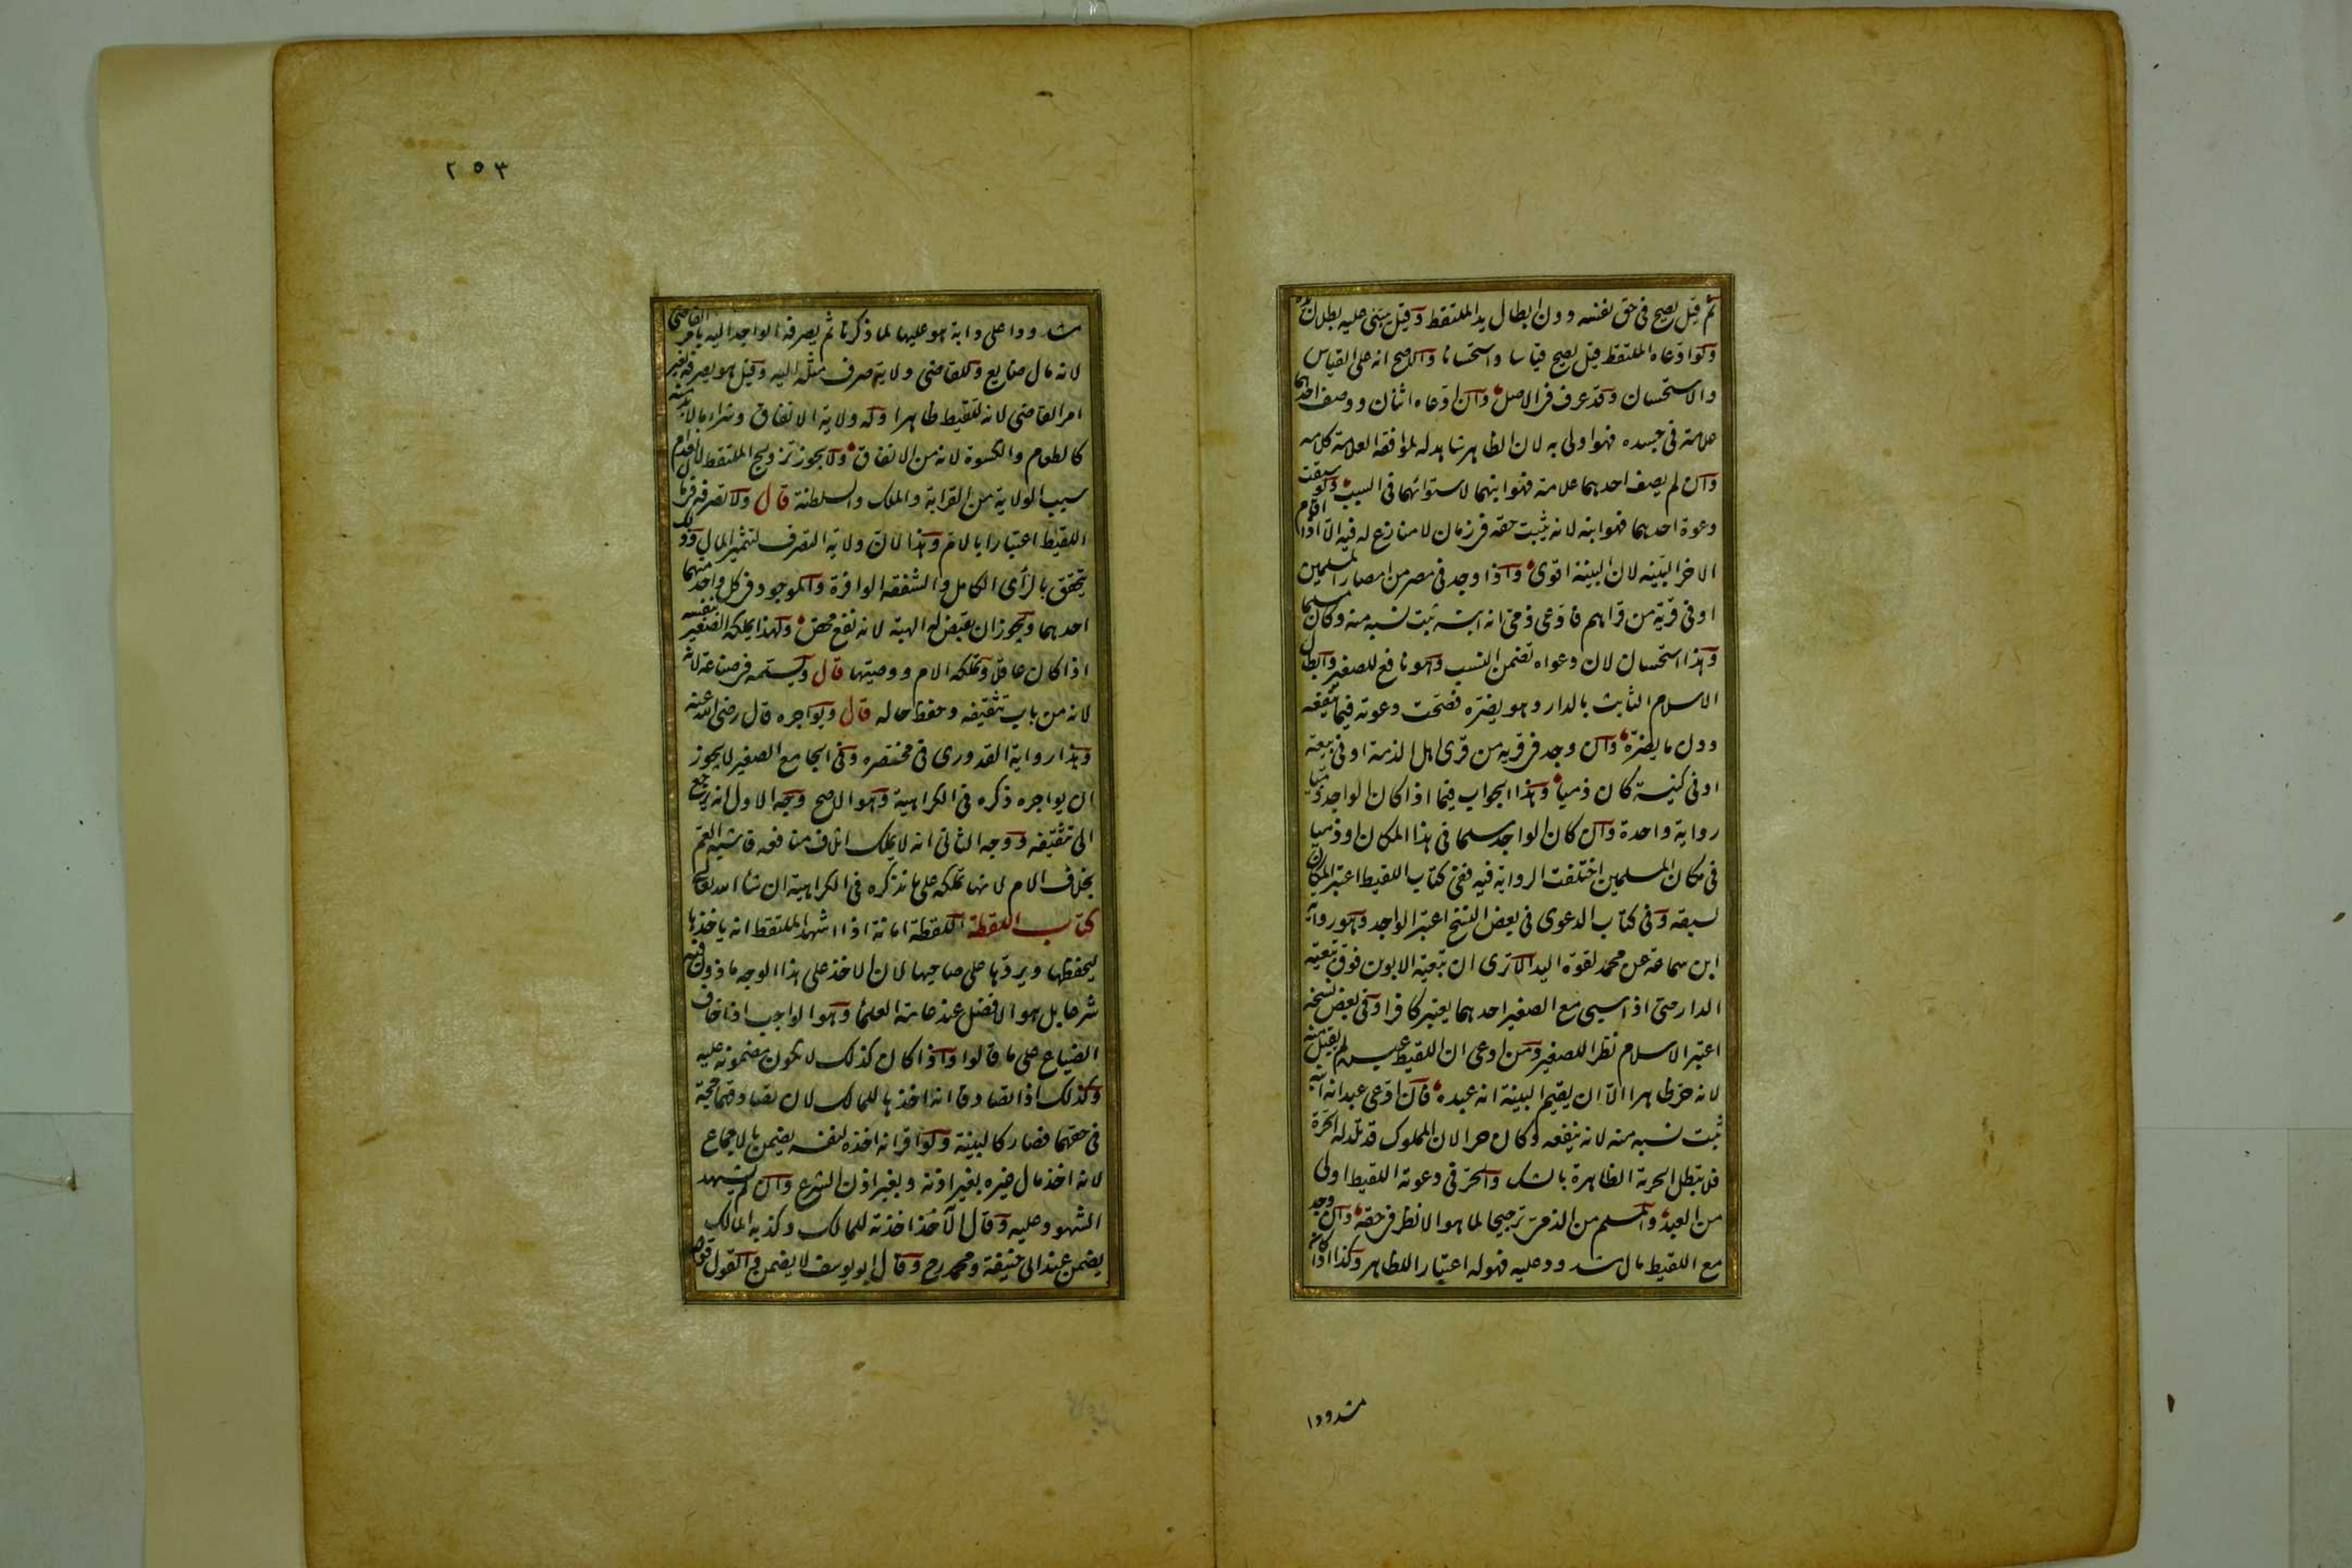 ثم قيل يصح في حق نفسه دون ابطال يد الملتقط وقيل يبتنى عليه بطلان يده
ولو ادعاه الملتقط قيل يصح قياسا واستحسانا والاصح انه على القياس
والاستحسان وقد عرف في الاصل وان ادعاه اثنان ووصف احدهما
علامة في جسده فهو اولى به لان الظاهر شاهد له لموافقة العلامة كلامه
وان لم يصف احدهما علامة فهو ابنهما لاستوائهما في السبب ولو سبقت
دعوة احدهما فهو ابنه لانه يثبت حقه في زمان لا منازع له فيه الا اذا اقام
الاخر البينة لان البينة اقوى واذا وجد في مصر من امصار المسلمين
او في قرية من قراهم فادعى ذمي انه ابنه ثبت نسبه منه وكان مسلما
وهذا استحسان لان دعواه تضمن النسب وهو نافع للصغير وابطال
الاسلام الثابت بالدار وهو يضره فصحت دعوته فيما ينفعه
دون ما يضره وان وجد في قرية من قرى اهل الذمة او في بيعة
او في كنيسة كان ذميا وهذا الجواب فيما اذا كان الواجد ذميا
رواية واحدة وان كان الواجد مسلما في هذا المكان او ذميا
في مكان المسلمين اختلفت الرواية فيه ففي كتاب اللقيط اعتبر المكان
لسبقه وفي كتاب الدعوى في بعض النسخ اعتبر الواجد وهو رواية
ابن سماعة عن محمد لقوة اليد الا ترى ان تبعية الابوين فوق تبعية
الدار حتى اذا سبي مع الصغير احدهما يعتبر كافرا وفي بعض نسخه
اعتبر الاسلام نظرا للصغير ومن ادعى ان اللقيط عبده لم يقبل منه
لانه حر ظاهرا الا ان يقيم البينة انه عبده فان ادعى عبد انه ابنه
ثبت نسبه منه لانه ينفعه وكان حرا لان المملوك قد تلد له الحرة
فلا تبطل الحرية الظاهرة بالشك والحر في دعوته اللقيط اولى
من العبد والمسلم من الذمي ترجيحا لما هو الانظر في حقه وان وجد
مع اللقيط مال مشدود عليه فهو له اعتبارا للظاهر وكذا اذا كان
مشدودا
٢٥٣
مشدودا على دابة هو عليها لما ذكرنا ثم يصرفه الواجد اليه بامر القاضي
لانه مال ضايع وللقاضي ولاية صرف مثله اليه وقيل هو يصرفه بغير
امر القاضي لانه للقيط ظاهرا وله ولاية الانفاق وشراء ما لا بد منه
كالطعام والكسوة لانه من الانفاق ولا يجوز تزويج الملتقط لانعدام
سبب الولاية من القرابة والملك والسلطنة قال ولا تصرفه في مال
اللقيط اعتبارا بالام وهذا لان ولاية التصرف لتثمير المال وذلك
يتحقق بالرأى الكامل والشفقة الوافرة والموجود في كل واحد منهما
احدهما ويجوز ان يقبض له الهبة لانه نفع محض ولهذا يملكه الصغير بنفسه
اذا كان عاقلا وتملكه الام ووصيتها قال ويسلمه في صناعة لانه
لانه من باب تثقيفه وحفظ حاله قال ويواجره قال رضى الله عنه
وهذا رواية القدورى في مختصره وفي الجامع الصغير لا يجوز
ان يواجره ذكره في الكراهية وهو الاصح وجه الاول انه يرجع
الى تثقيفه ووجه الثاني انه لا يملك اتلاف منافعه فاشبه العم
بخلاف الام لانها تملكه على ما نذكره في الكراهية ان شاء الله تعالى
كتاب اللقطة اللقطة امانة اذا اشهد الملتقط انه ياخذها
ليحفظها ويردها على صاحبها لان الاخذ على هذا الوجه ماذون فيه
شرعا بل هو الافضل عند عامة العلما وهو الواجب اذا خاف
الضياع على ما قالوا واذا كان كذلك لا تكون مضمونة عليه
وكذلك اذا تصادقا انه اخذها للمالك لان تصادقهما حجة
في حقهما فصار كالبينة ولو اقر انه اخذه لنفسه يضمن بالاجماع
لانه اخذ مال غيره بغير اذنه وبغير اذن الشرع وان لم يشهد
الشهود عليه وقال الآخذ اخذته للمالك وكذبه المالك
يضمن عند ابى حنيفة ومحمد رح وقال ابو يوسف لا يضمن والقول قوله